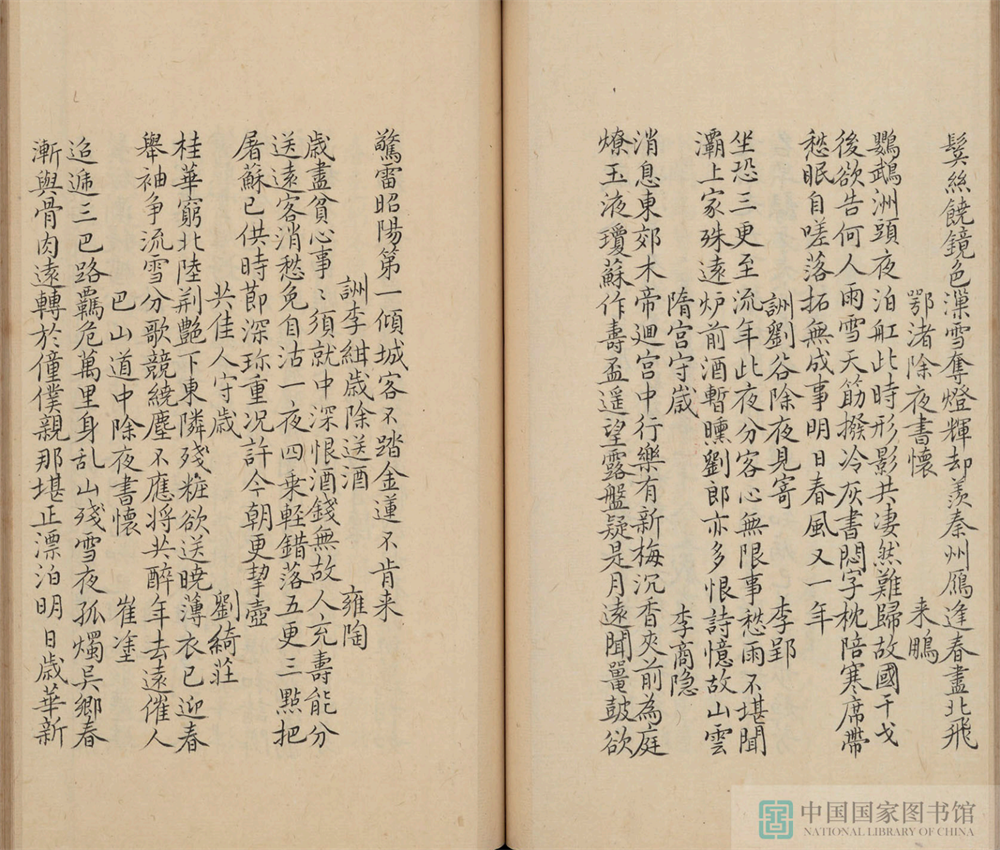 鬂絲饒鏡色深雪奪燈輝却羨秦州鴈逢春盡北飛
鄂渚除夜書懷 来鵬
鸚鵡洲頭夜泊舡此時形影共凄然難歸故國干戈
後欲告何人雨雪天筯撥冷灰書悶字枕陪寒席帶
愁眠自嗟落拓無成事明日春風又一年
詶劉谷除夜見寄 李郢
坐恐三更至流年此夜分客心無限事愁雨不堪聞
灞上家殊遠炉前酒暫曛劉郎亦多恨詩憶故山雲
隋宫守歳 李商隐
消息東郊木帝廻宫中行樂有新梅沉香夾前為庭
燎玉液瓊蘇作壽盃遥望露盤疑是月遠聞鼉鼓欲
驚雷昭陽第一傾城客不踏金蓮不肯来
詶李紺歳除送酒 雍陶
歳盡貧心事〻須就中深恨酒錢無故人充壽能分
送遠客消愁免自沽一夜四乗輕錯落五更三點把
屠蘇已供時莭深珎重况許今朝更挈壺
共佳人守歳 劉綺莊
桂華窮北陸荆艶下東隣殘粧欲送曉薄衣已迎春
舉袖争流雪分歌競繞塵不應將共醉年去遠催人
巴山道中除夜書懷 崔塗
迢遞三巴路羈危萬里身乱山殘雪夜孤燭吴鄉春
漸與骨肉遠轉於僮僕親那堪正漂泊明日歳華新
中国国家图书馆
NATIONAL LIBRARY OF CHINA